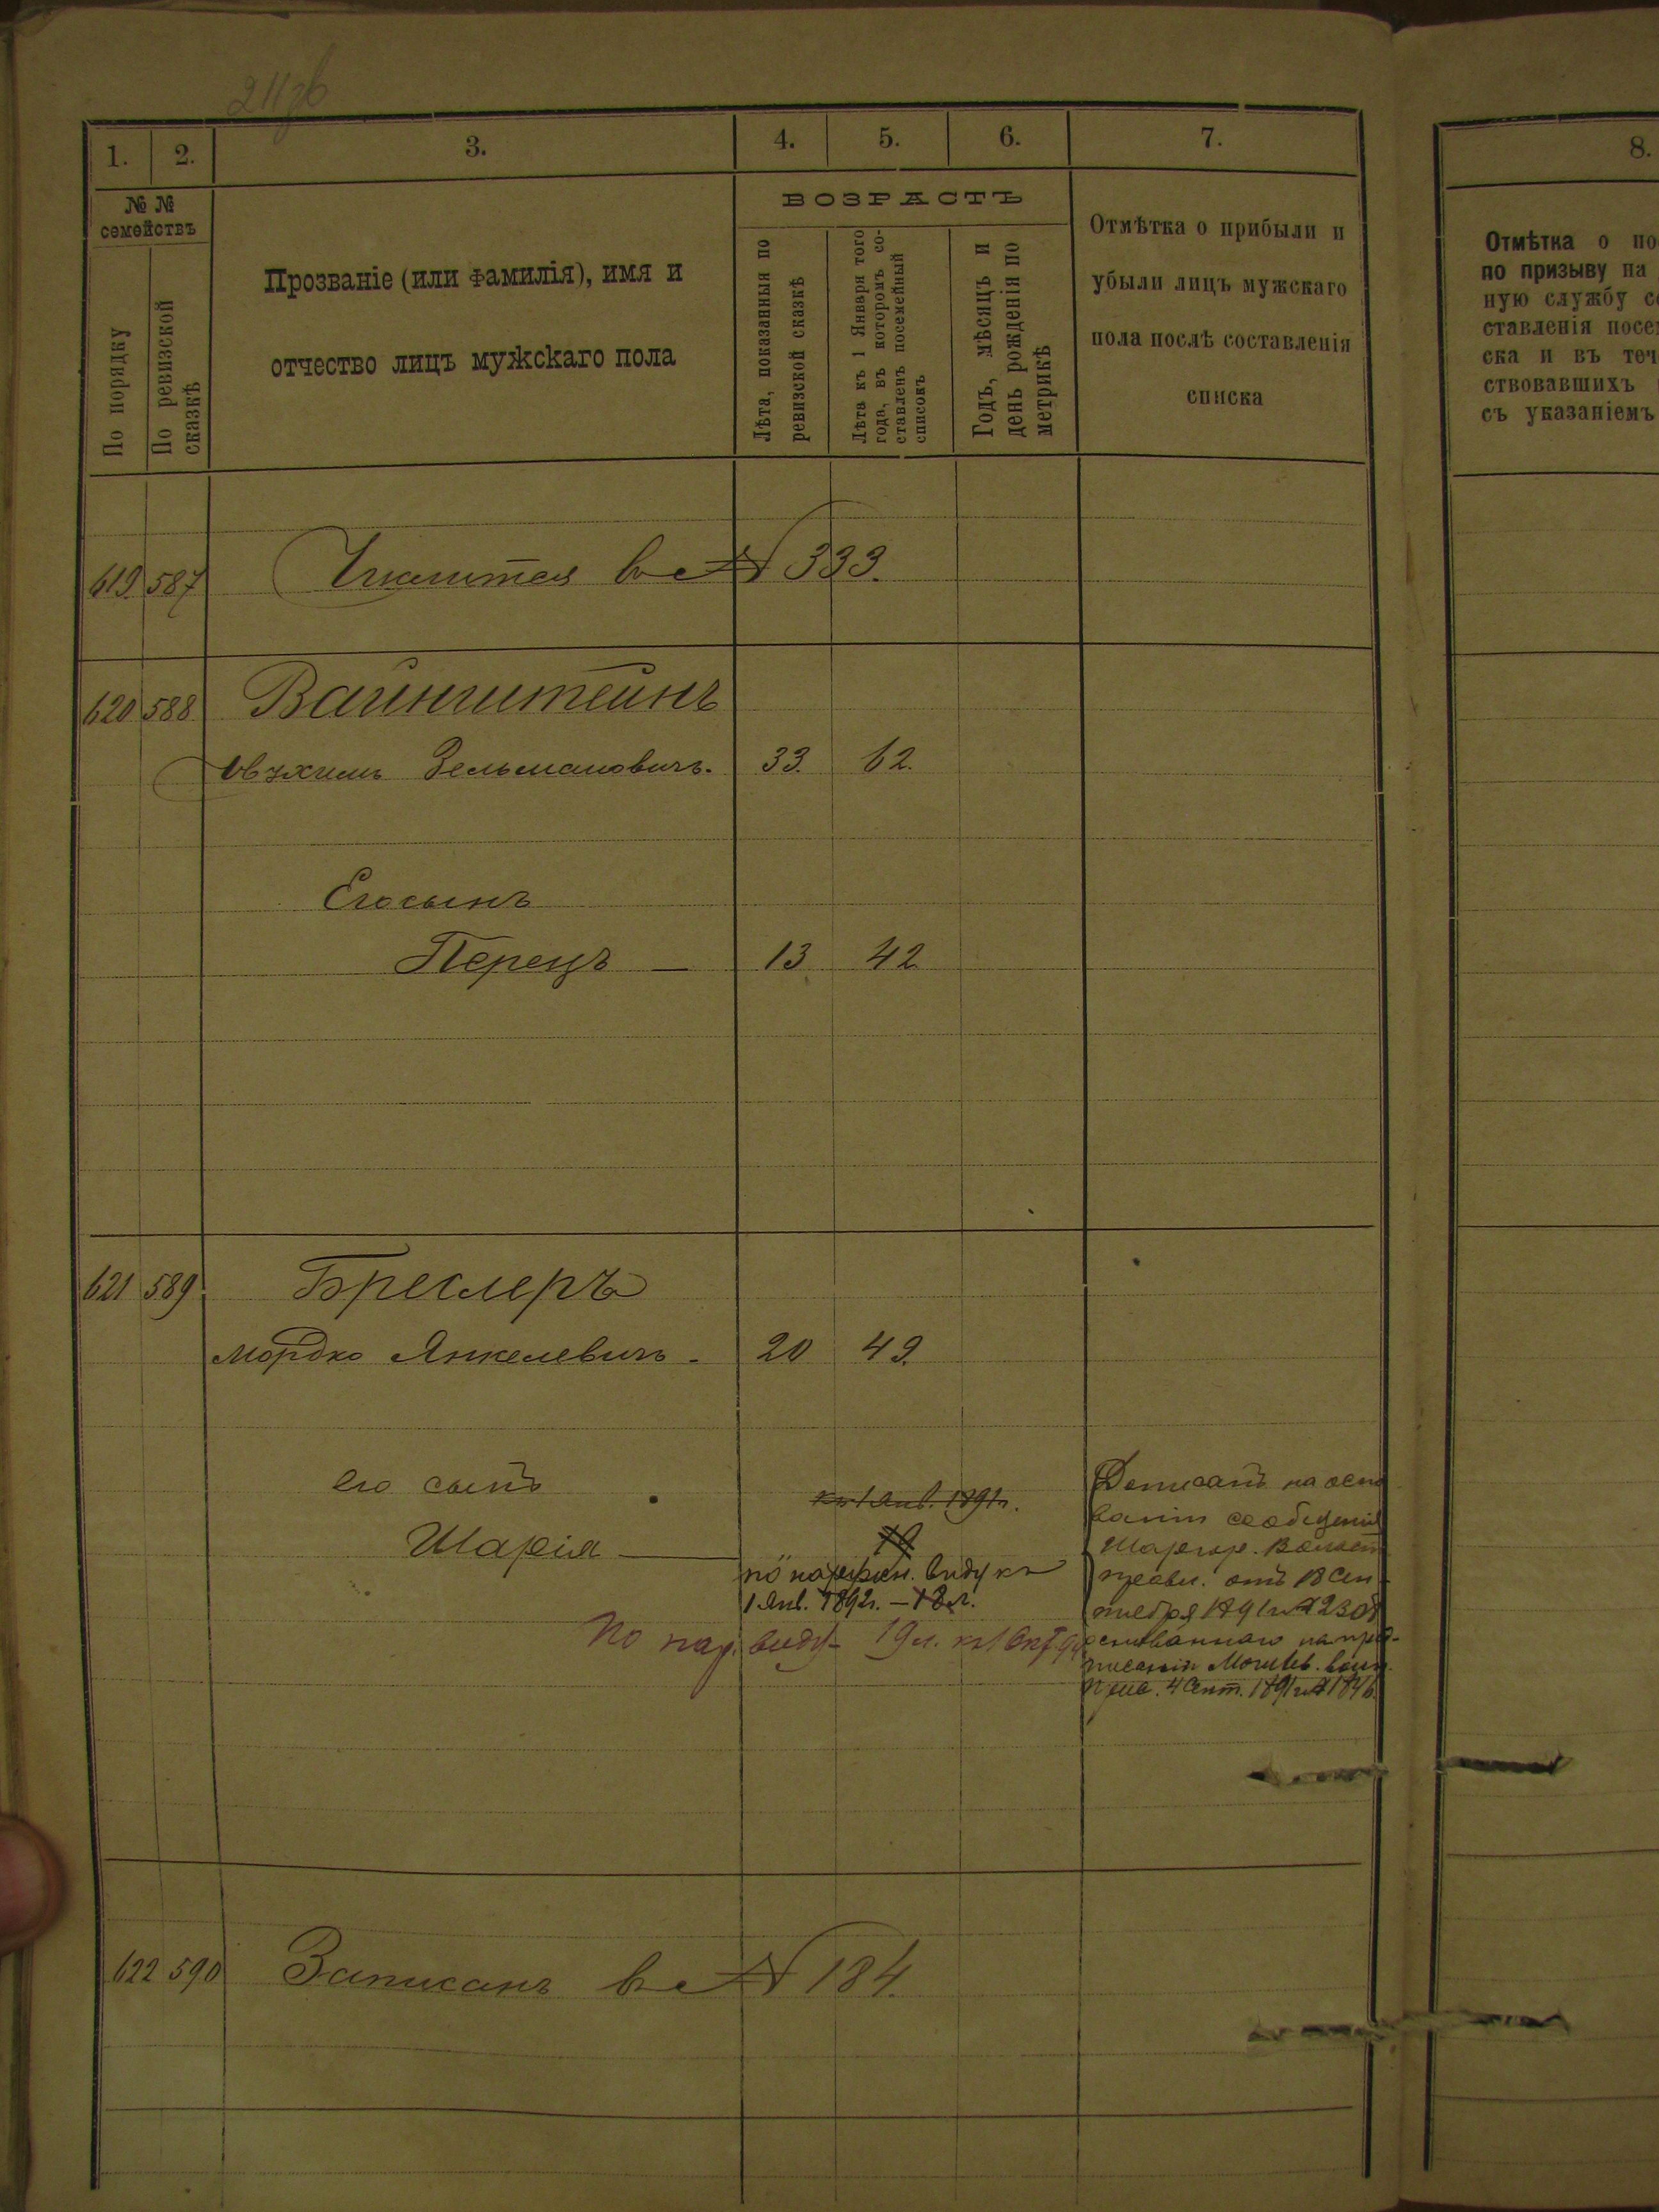 211 зб
1. 2. 3. 4. 5. 6. 7.
№ №
семействъ
По порядку
По ревизской
сказкѣ
Прозваніе (или фамилія), имя и
отчество лицъ мужскаго пола
ВОЗРАСТЪ
Лѣта, показанныя по
ревизской сказкѣ
Лѣта къ 1 Января того
года, въ которомъ со-
ставленъ посемейный
списокъ
Годъ, мѣсяцъ и
день рожденія по
метрикѣ
Отмѣтка о прибыли и
убыли лицъ мужскаго
пола послѣ составленія
списка
619. 587 Числится въ № 333.
620 588 Вайнштейнъ
Зельмановичъ. 33. 62.
Его сынъ
Перецъ — 13 42
621 589 Бреслеръ
Мордко Янкелевичъ. 20 49.
его сынъ
Шарія —
къ 1 Янв. 1891 г.
по наружн. виду къ
1 Янв. 1892 г. — 18 л.
По нар. виду 19 л. к 1 Окт.
Дописанъ на осно
ваніи сообщенія
Шаргор. Волост
правл. отъ 18 Сен
тября 1891 г. № 2308
основаннаго на пред-
писаніи Могилев. воин.
прис. 4 Сент. 1891 г. № 1846.
622 590 Записанъ въ № 184.
8.
Отмѣтка о по
по призыву на
ную службу с
ставленія посе
ска и въ теч
ствовавшихъ
съ указаніемъ